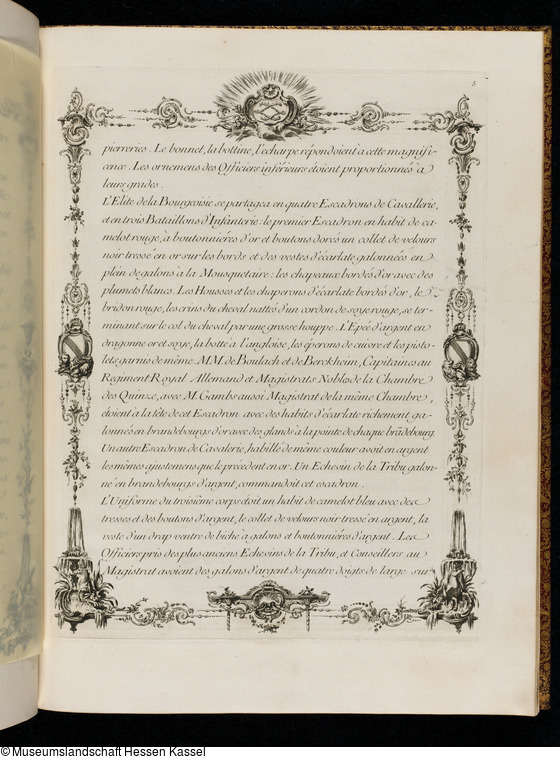 5
pierreries. Le bonnet, la bottine, l'echarpe répondoient a cette magnifi-
cence. Les ornemens des Officiers inférieurs étoient proportionnés à
leurs grades.
L'Elite de la Bourgeoisie se partagea en quatre Escadrons de Cavallerie,
et en trois Bataillons d'Infanterie: le premier Escadron en habit de ca-
melot rouge, à boutonnieres d'or et boutons dorés un collet de velours
noir tressé en or sur les bords et des vestes d'écarlate galonnées en
plein de galons à la Mousquetaire; les chapeaux bordés d'or avec des
plumets blancs. Les Housses et les chaperons d'écarlate bordés d'or, le
bridon rouge, les crins du cheval nattés d'un cordon de soye rouge, se ter-
minant sur le col du cheval par une grosse houppe. L'Epeé d'argent en
dragonne or et soye, la botte à l'angloise, les éperons de cuivre et les pisto-
lets garnis de même. MM. de Boulach et de Berckheim, Capitaines au
Regiment Royal Allemand et Magistrats Nobles de la Chambre
des Quinze, avec M. Gambs aussi Magistrat de la même Chambre,
étoient à la tête de cet Escadron avec des habits d'écarlate richement ga-
lonnés en brandebourgs d'or avec des glands à la pointe de chaque brãdebourg.
Un autre Escadron de Cavalerie, habillé de même couleur avoit en argent
les mêmes ajustemens que le précedent en or. Un Echevin de la Tribu, galon-
né en brandebourgs d'argent, commandoit cet escadron.
L'Uniforme du troisième corps étoit un habit de camelot bleu avec des
tresses et des boutons d'argent, le collet de velours noir tressé en argent, la
veste d'un drap ventre de biche à galons et boutonnières d'argent. Les
Officiers pris des plus anciens Echevins de la Tribu, et Conseillers au
Magistrat avoient des galons d'argent de quatre doigts de large sur
© Museumslandschaft Hessen Kassel